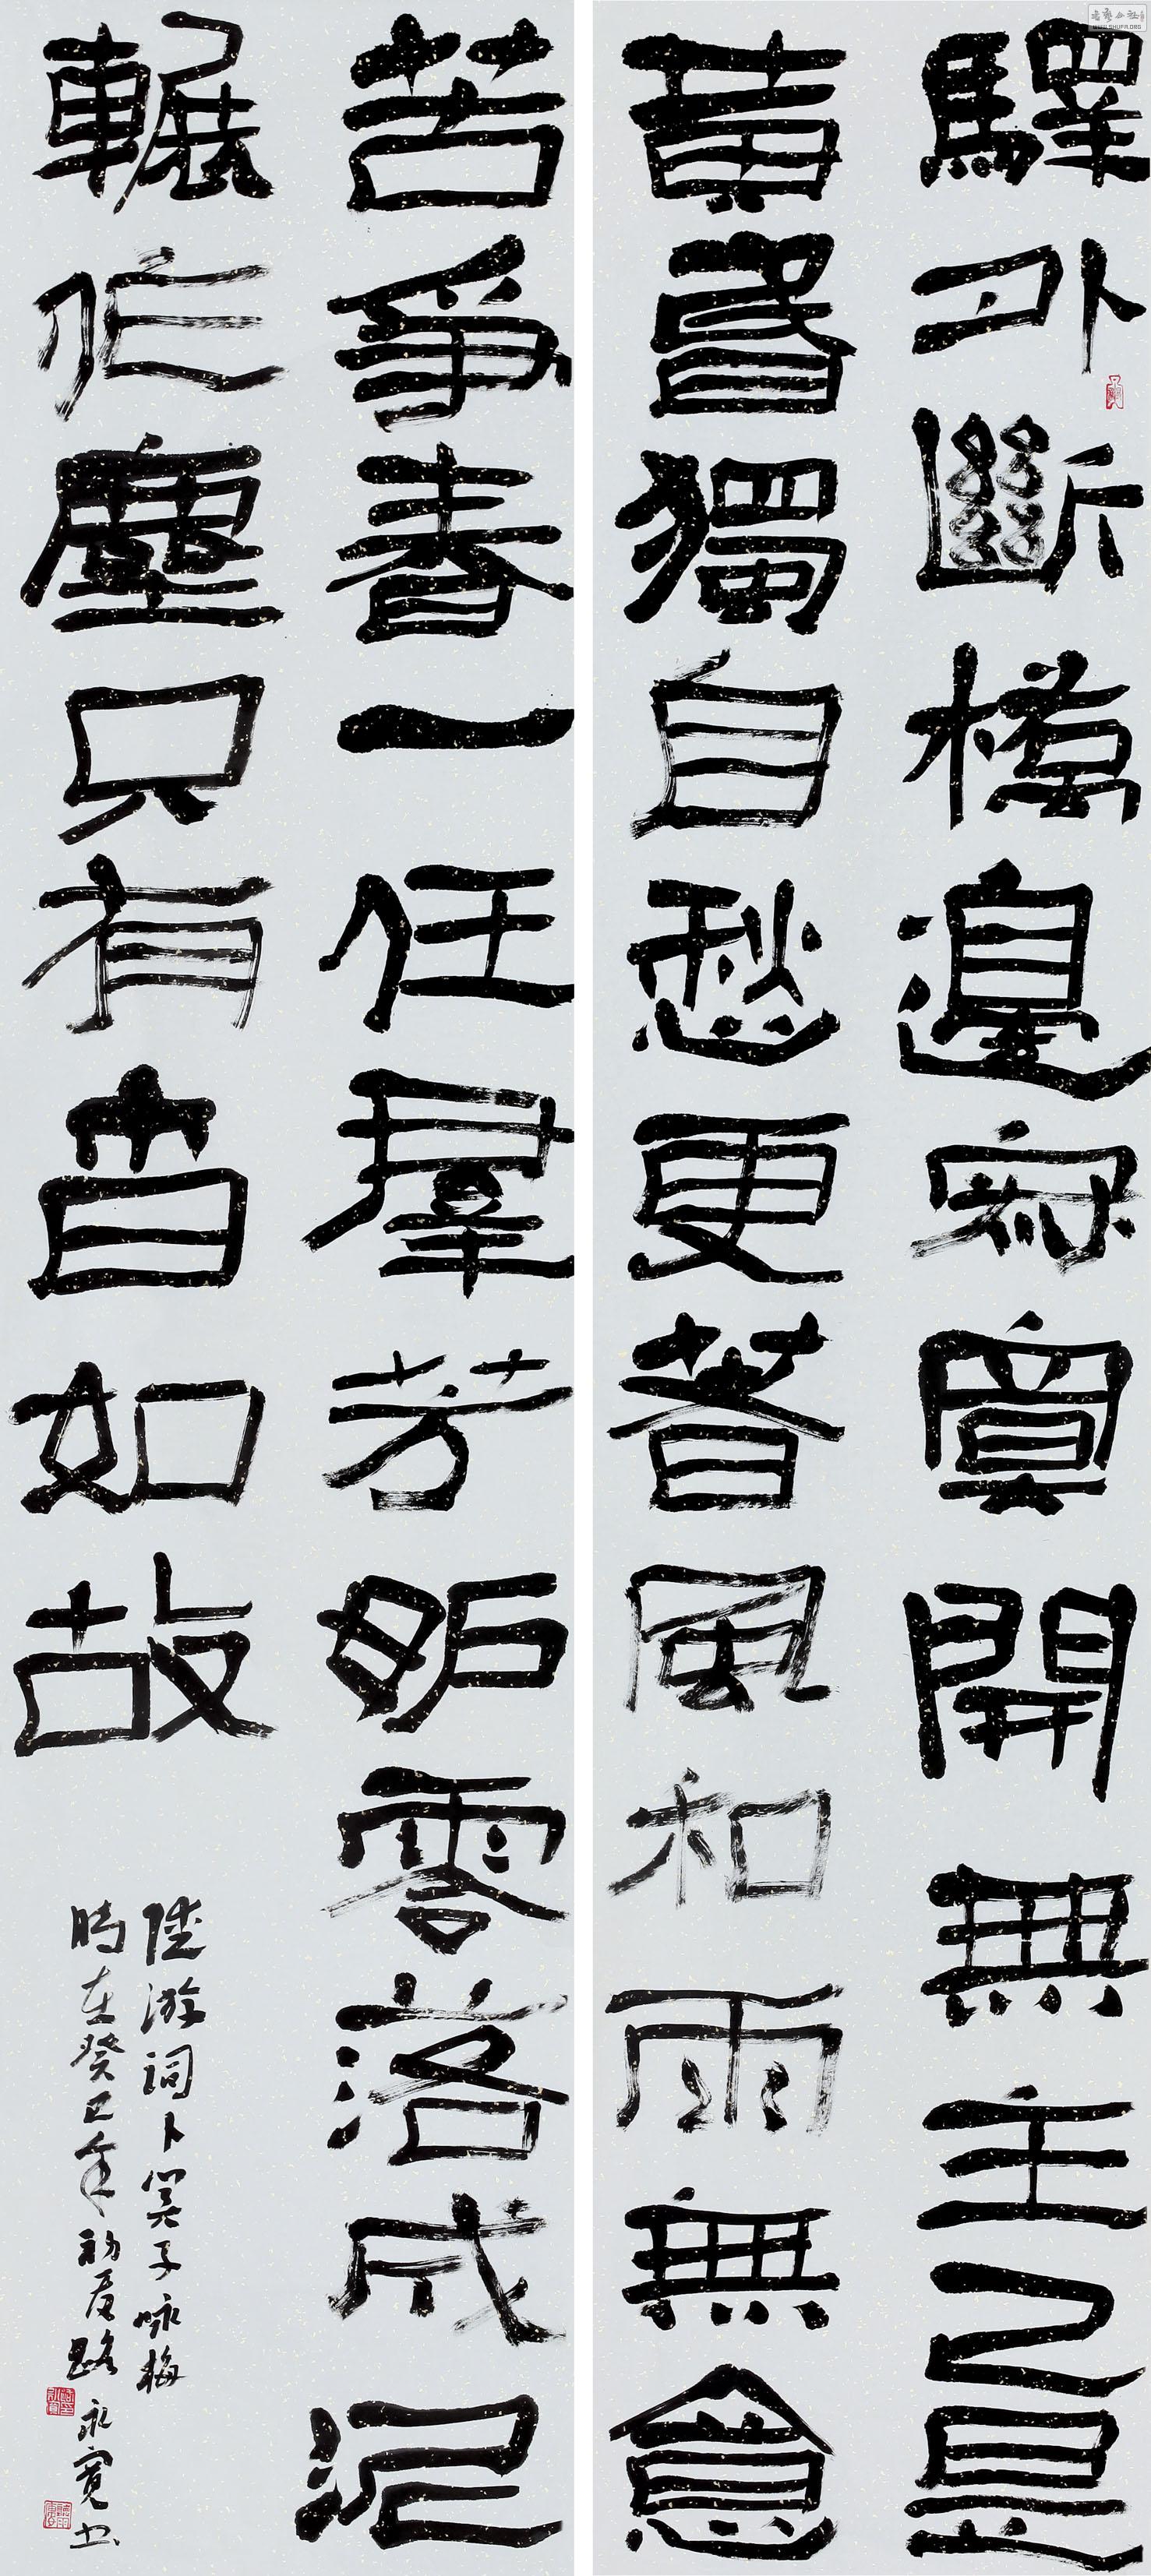 驛外斷橋邊寂寞開無主已是
黃昏獨自愁更著風和雨無意
苦爭春一任羣芳妒零落成泥
輾作塵只有香如故
陸游詞卜算子咏梅
時在癸巳年初夏路永寬书
WWW.SHUFA.ORG